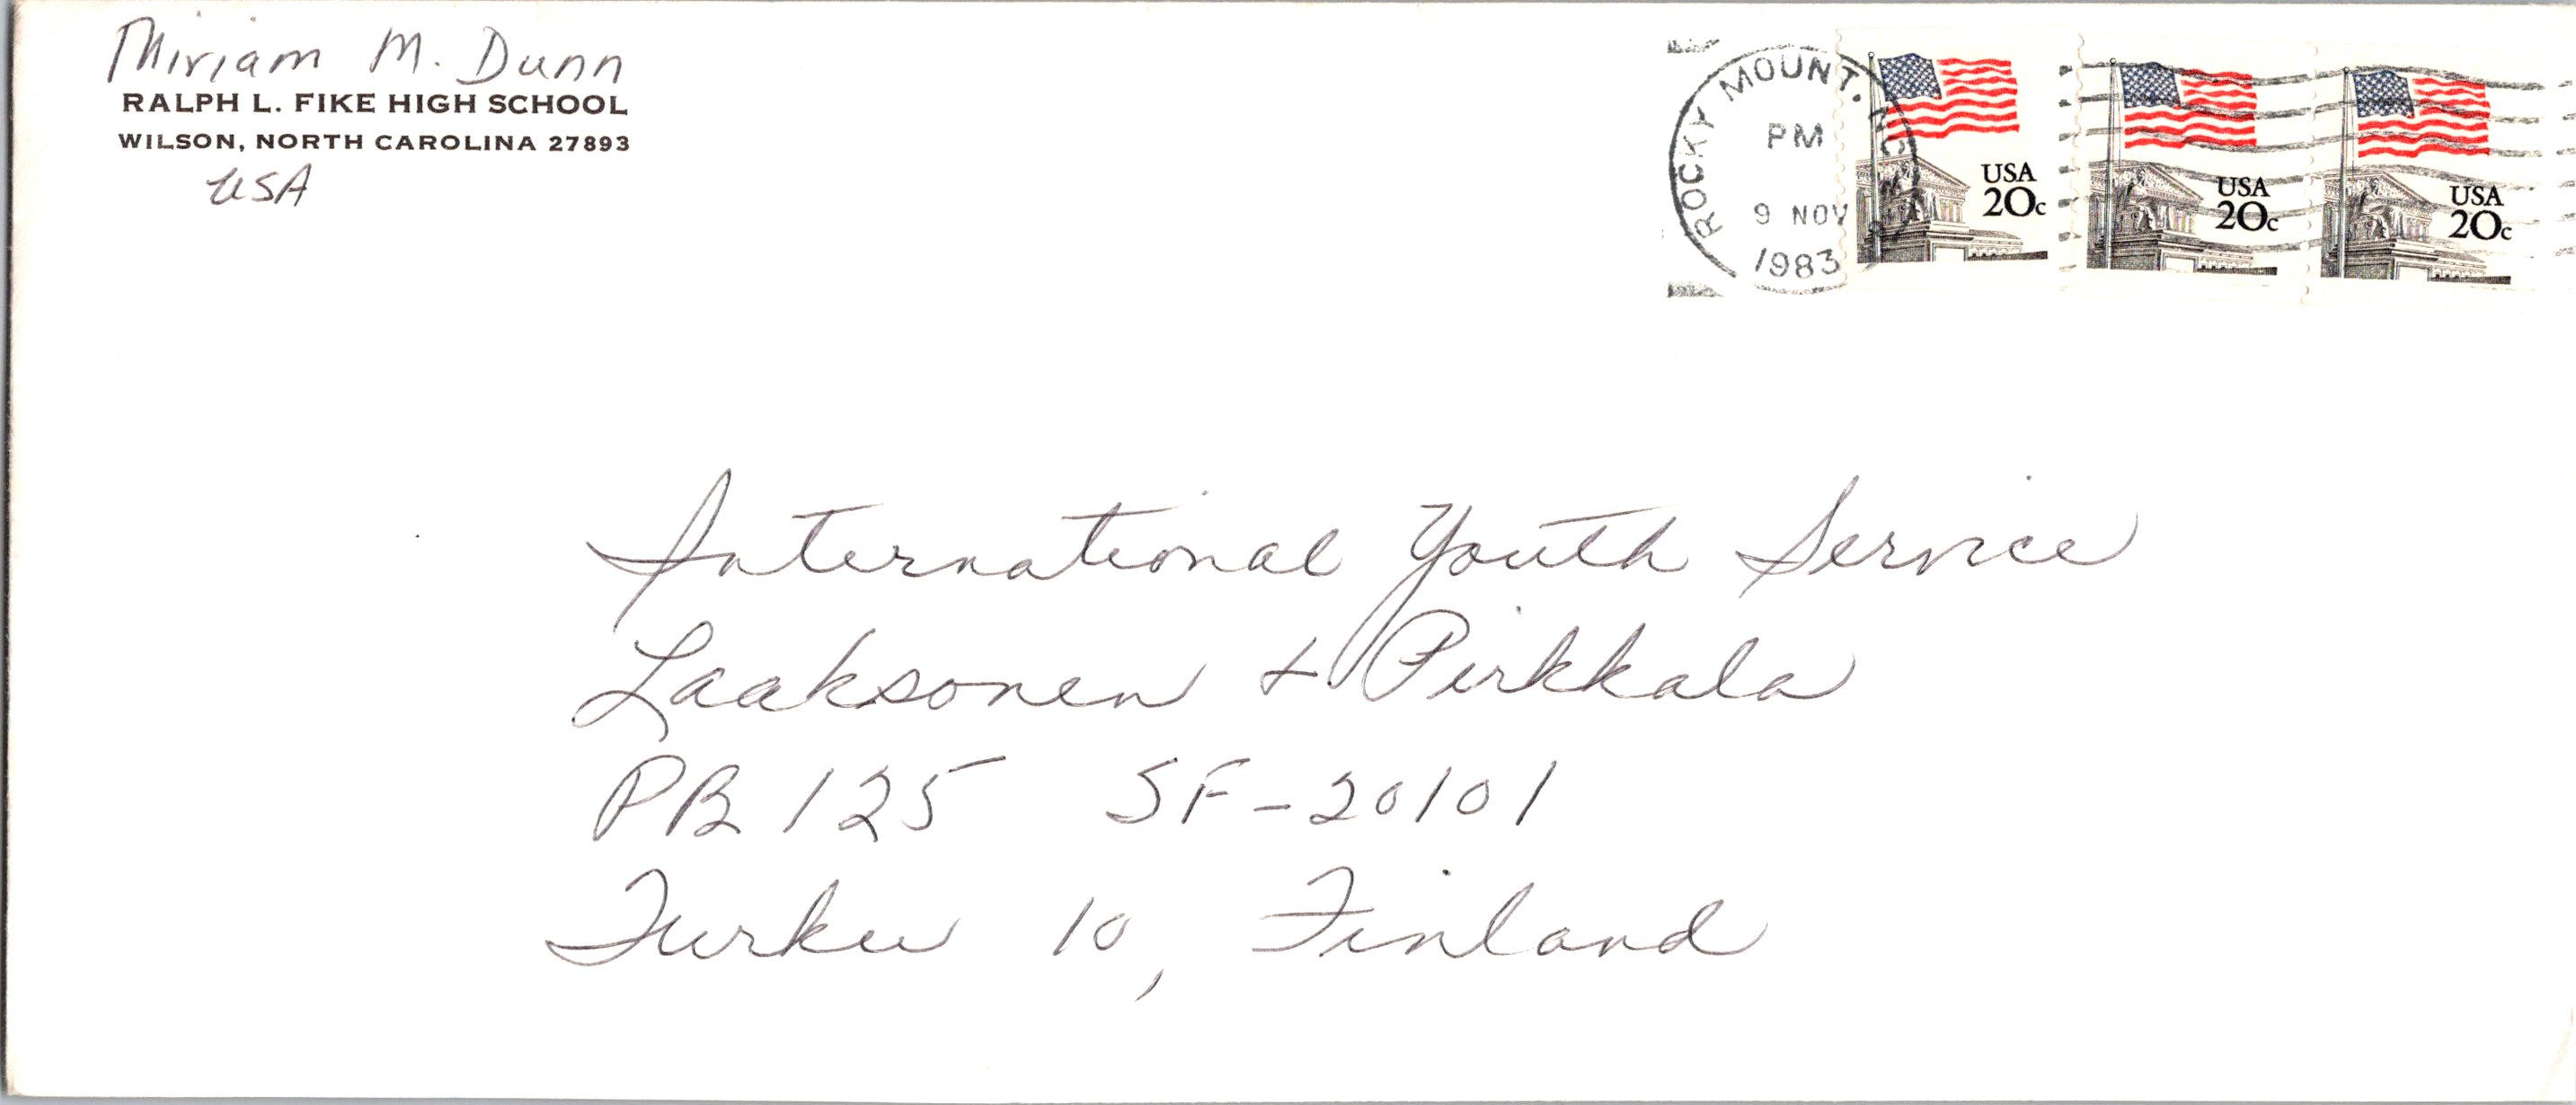 Miriam M. Dunn
RALPH L. FIKE HIGH SCHOOL
WILSON, NORTH CAROLINA 27893
USA
ROCKY MOUNT. NC
PM
9 NOV
1983
USA
20c
USA
20c
USA
20c
International Youth Service
Laaksonen + Pirkkala
PB 125 SF-20101
Turku 10, Finland